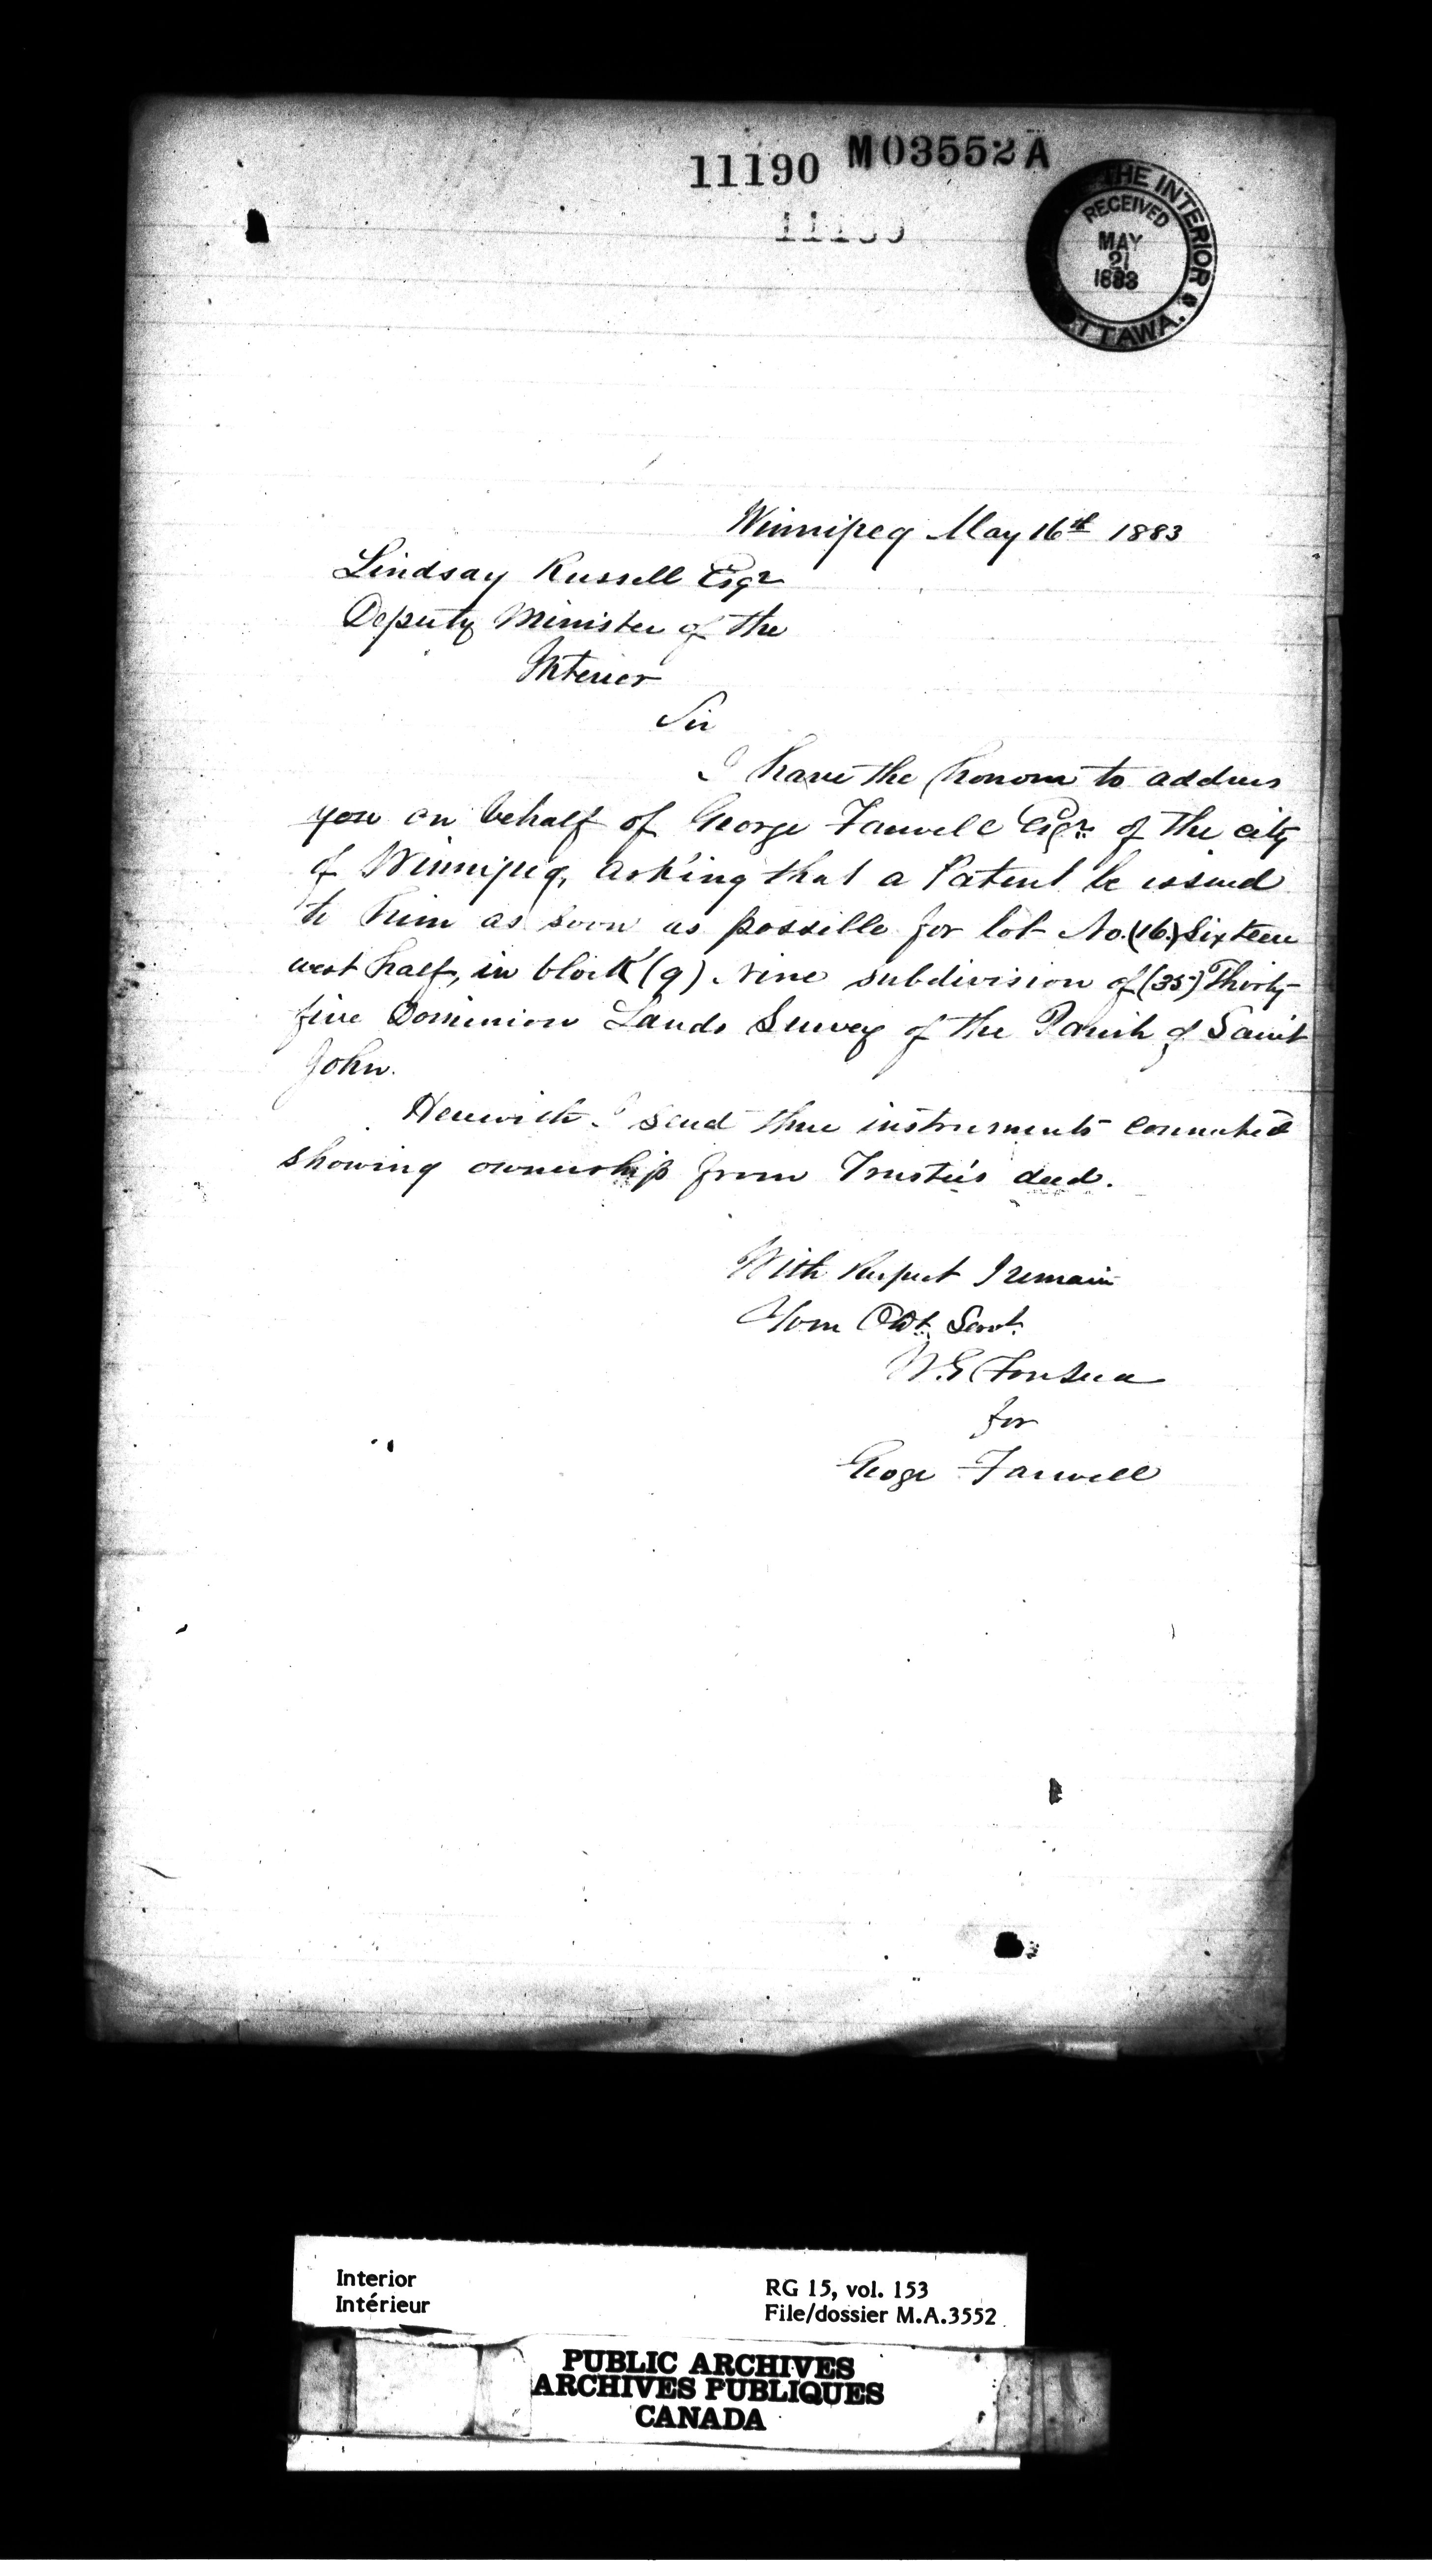 11190 M03552A
THE INTERIOR
RECEIVED
MAY
21
1883
OTTAWA.
Winnipeg May 16th 1883
Lindsay Russell Esqr
Deputy Minister of the
Interior
Sir
I have the honour to address
you on behalf of George Farwell Esqr. of the city
of Winnipeg, asking that a Patent be issued
to him as soon as possible for lot No. (16.) Sixteen
west half, in block (9) nine subdivision of (35) Thirty-
five Dominion Lands Survey of the Parish of Saint
John.
Herewith I send three instruments connected
showing ownership from Trustee's deed.
With Respect I remain
Your Obt. Servt.
W.G Fonseca
for
George Farwell
Interior
Intérieur
RG 15, vol. 153
File/dossier M.A.3552
PUBLIC ARCHIVES
ARCHIVES PUBLIQUES
CANADA